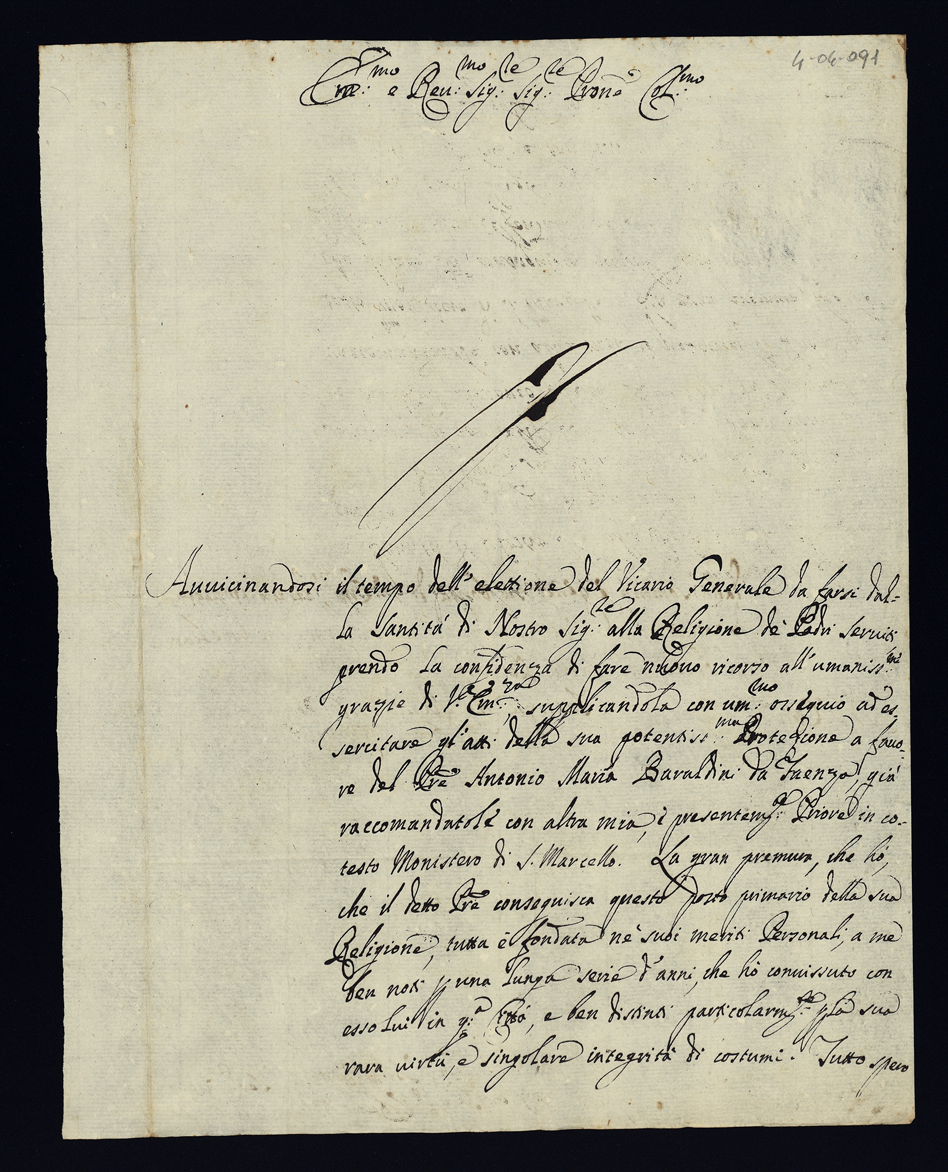 4-04-091
Em:mo e Reu:mo Sig:re Sig:re Prone Col:mo
Auuicinandosi il tempo dell'elettione del Vicario Generale da farsi dal-
la Santità di Nostro Sig:re alla Religione de Padri Seruiti
prendo la confidenza di fare nuouo ricorso all'umaniss:me
grazie di V. Em:za, supplicandola con um:mo ossequio ad es-
sercitare gl'atti della sua potentiss:ma Protezione a fauo-
re del Pre Antonio Maria Baraldini da Faenza, già
raccomandatole con altra mia, è presentem:e Priore in co-
testo Monistero di S. Marcello. La gran premura, che hò,
che il detto Pre conseguisca questo posto primario della sua
Religione, tutta è fondata ne suoi meriti Personali, a me
ben noti p una lunga serie d'anni, che hò conuissuto con
esso lui in q:a Città, e ben distinti particolarm:te p la sua
rara uirtù, e singolare integrità di costumi. Tutto spero